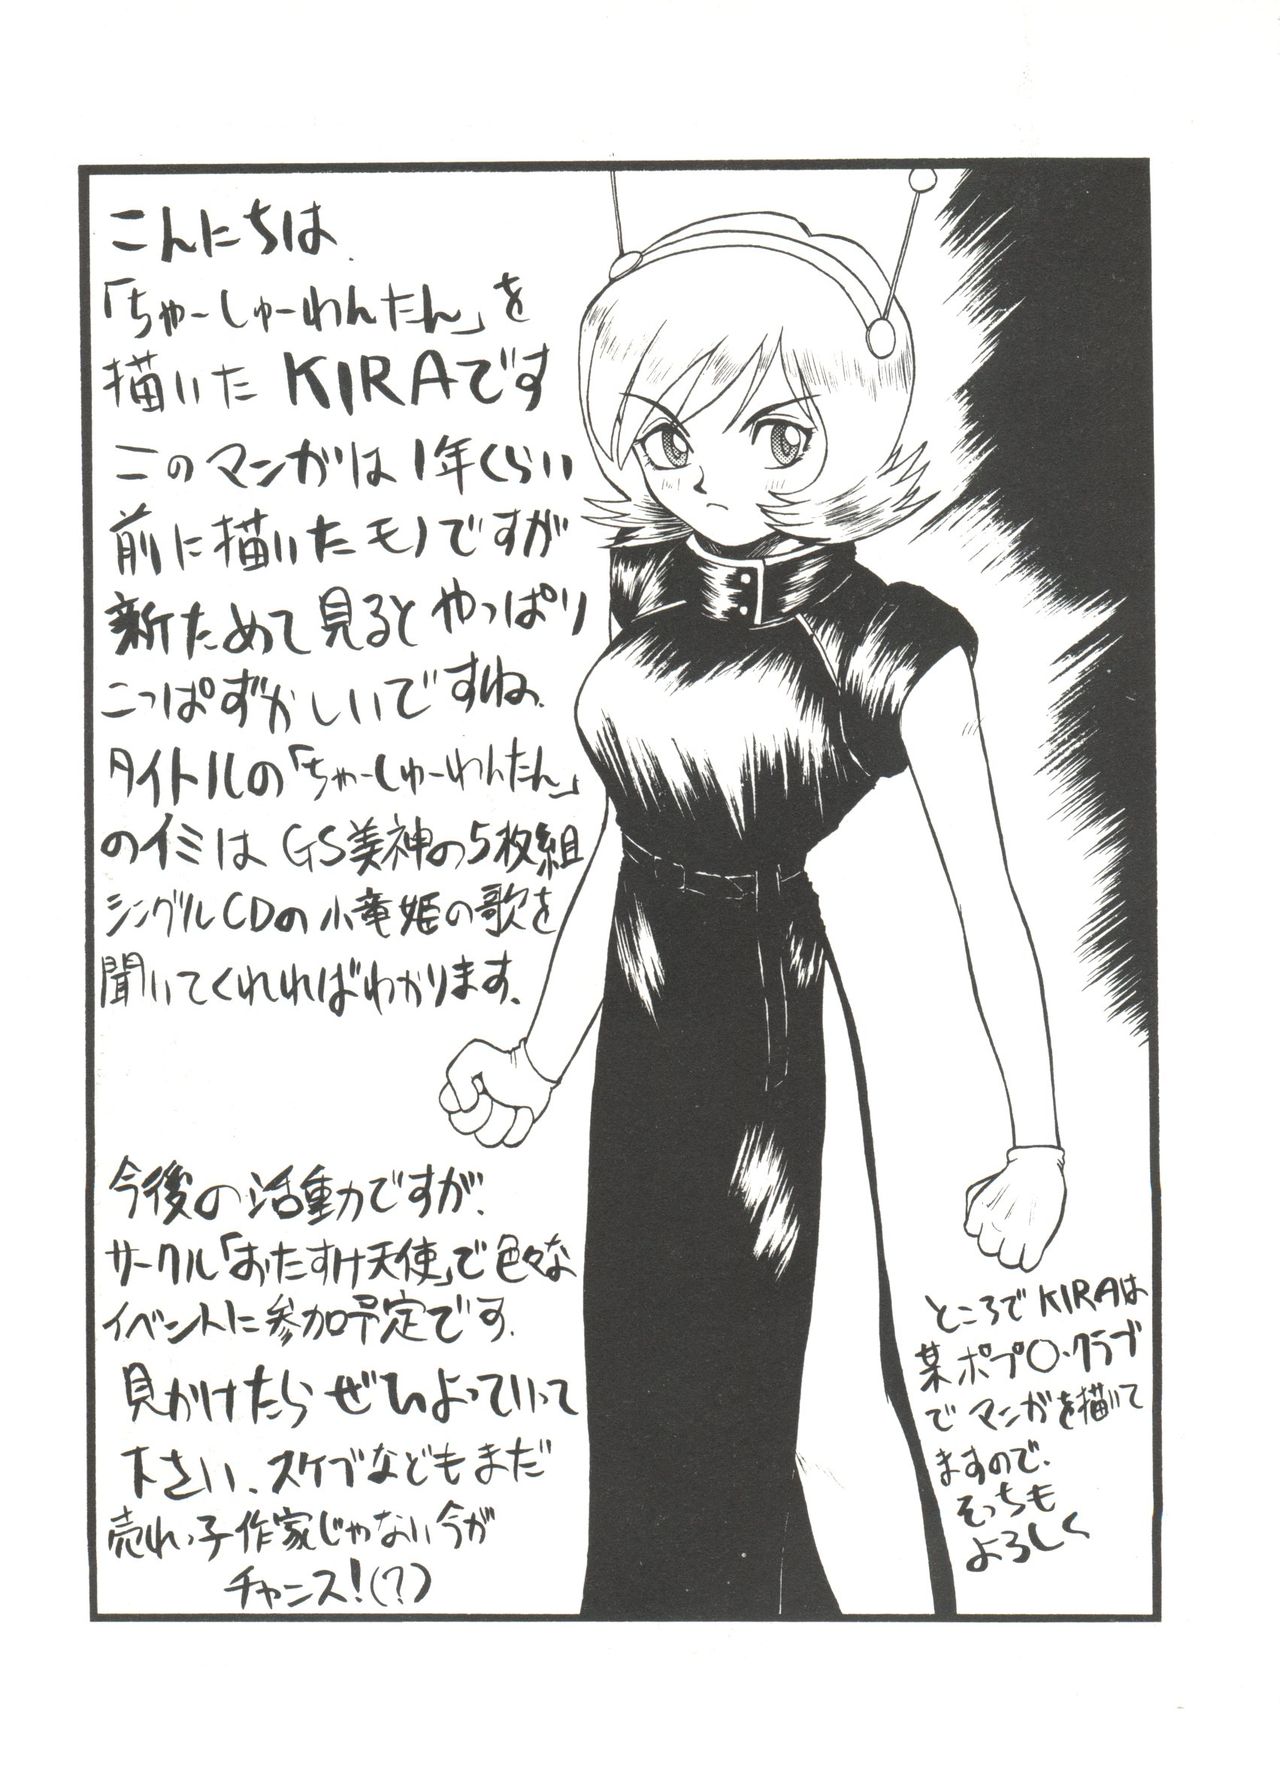 こんにちは、
「ちゃーしゅーわんたん」を
描いた KIRAです
このマンガは1年くらい
前に描いたモノですが
新ためて見るとやっぱり
こっぱずかしいですね。
タイトルの「ちゃーしゅーわんたん」
のイミは GS美神の5枚組
シングルCDの小竜姫の歌を
聞いてくれればわかります。
今後の活動ですが、
サークル「おたすけ天使」で色々な
イベントに参加予定です。
見かけたら ぜひよっていって
下さい、スケブなどもまだ
売れっ子作家じゃない今が
チャンス!(?)
ところで KIRAは
某ポプ〇・クラブ
で マンガを描いて
ますので、
そっちも
よろしく